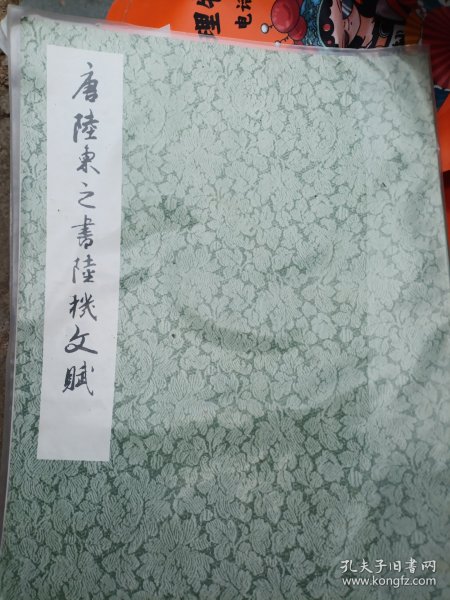 唐陸柬之書陸機文賦
電
孔夫子旧书网
www.kongfz.com